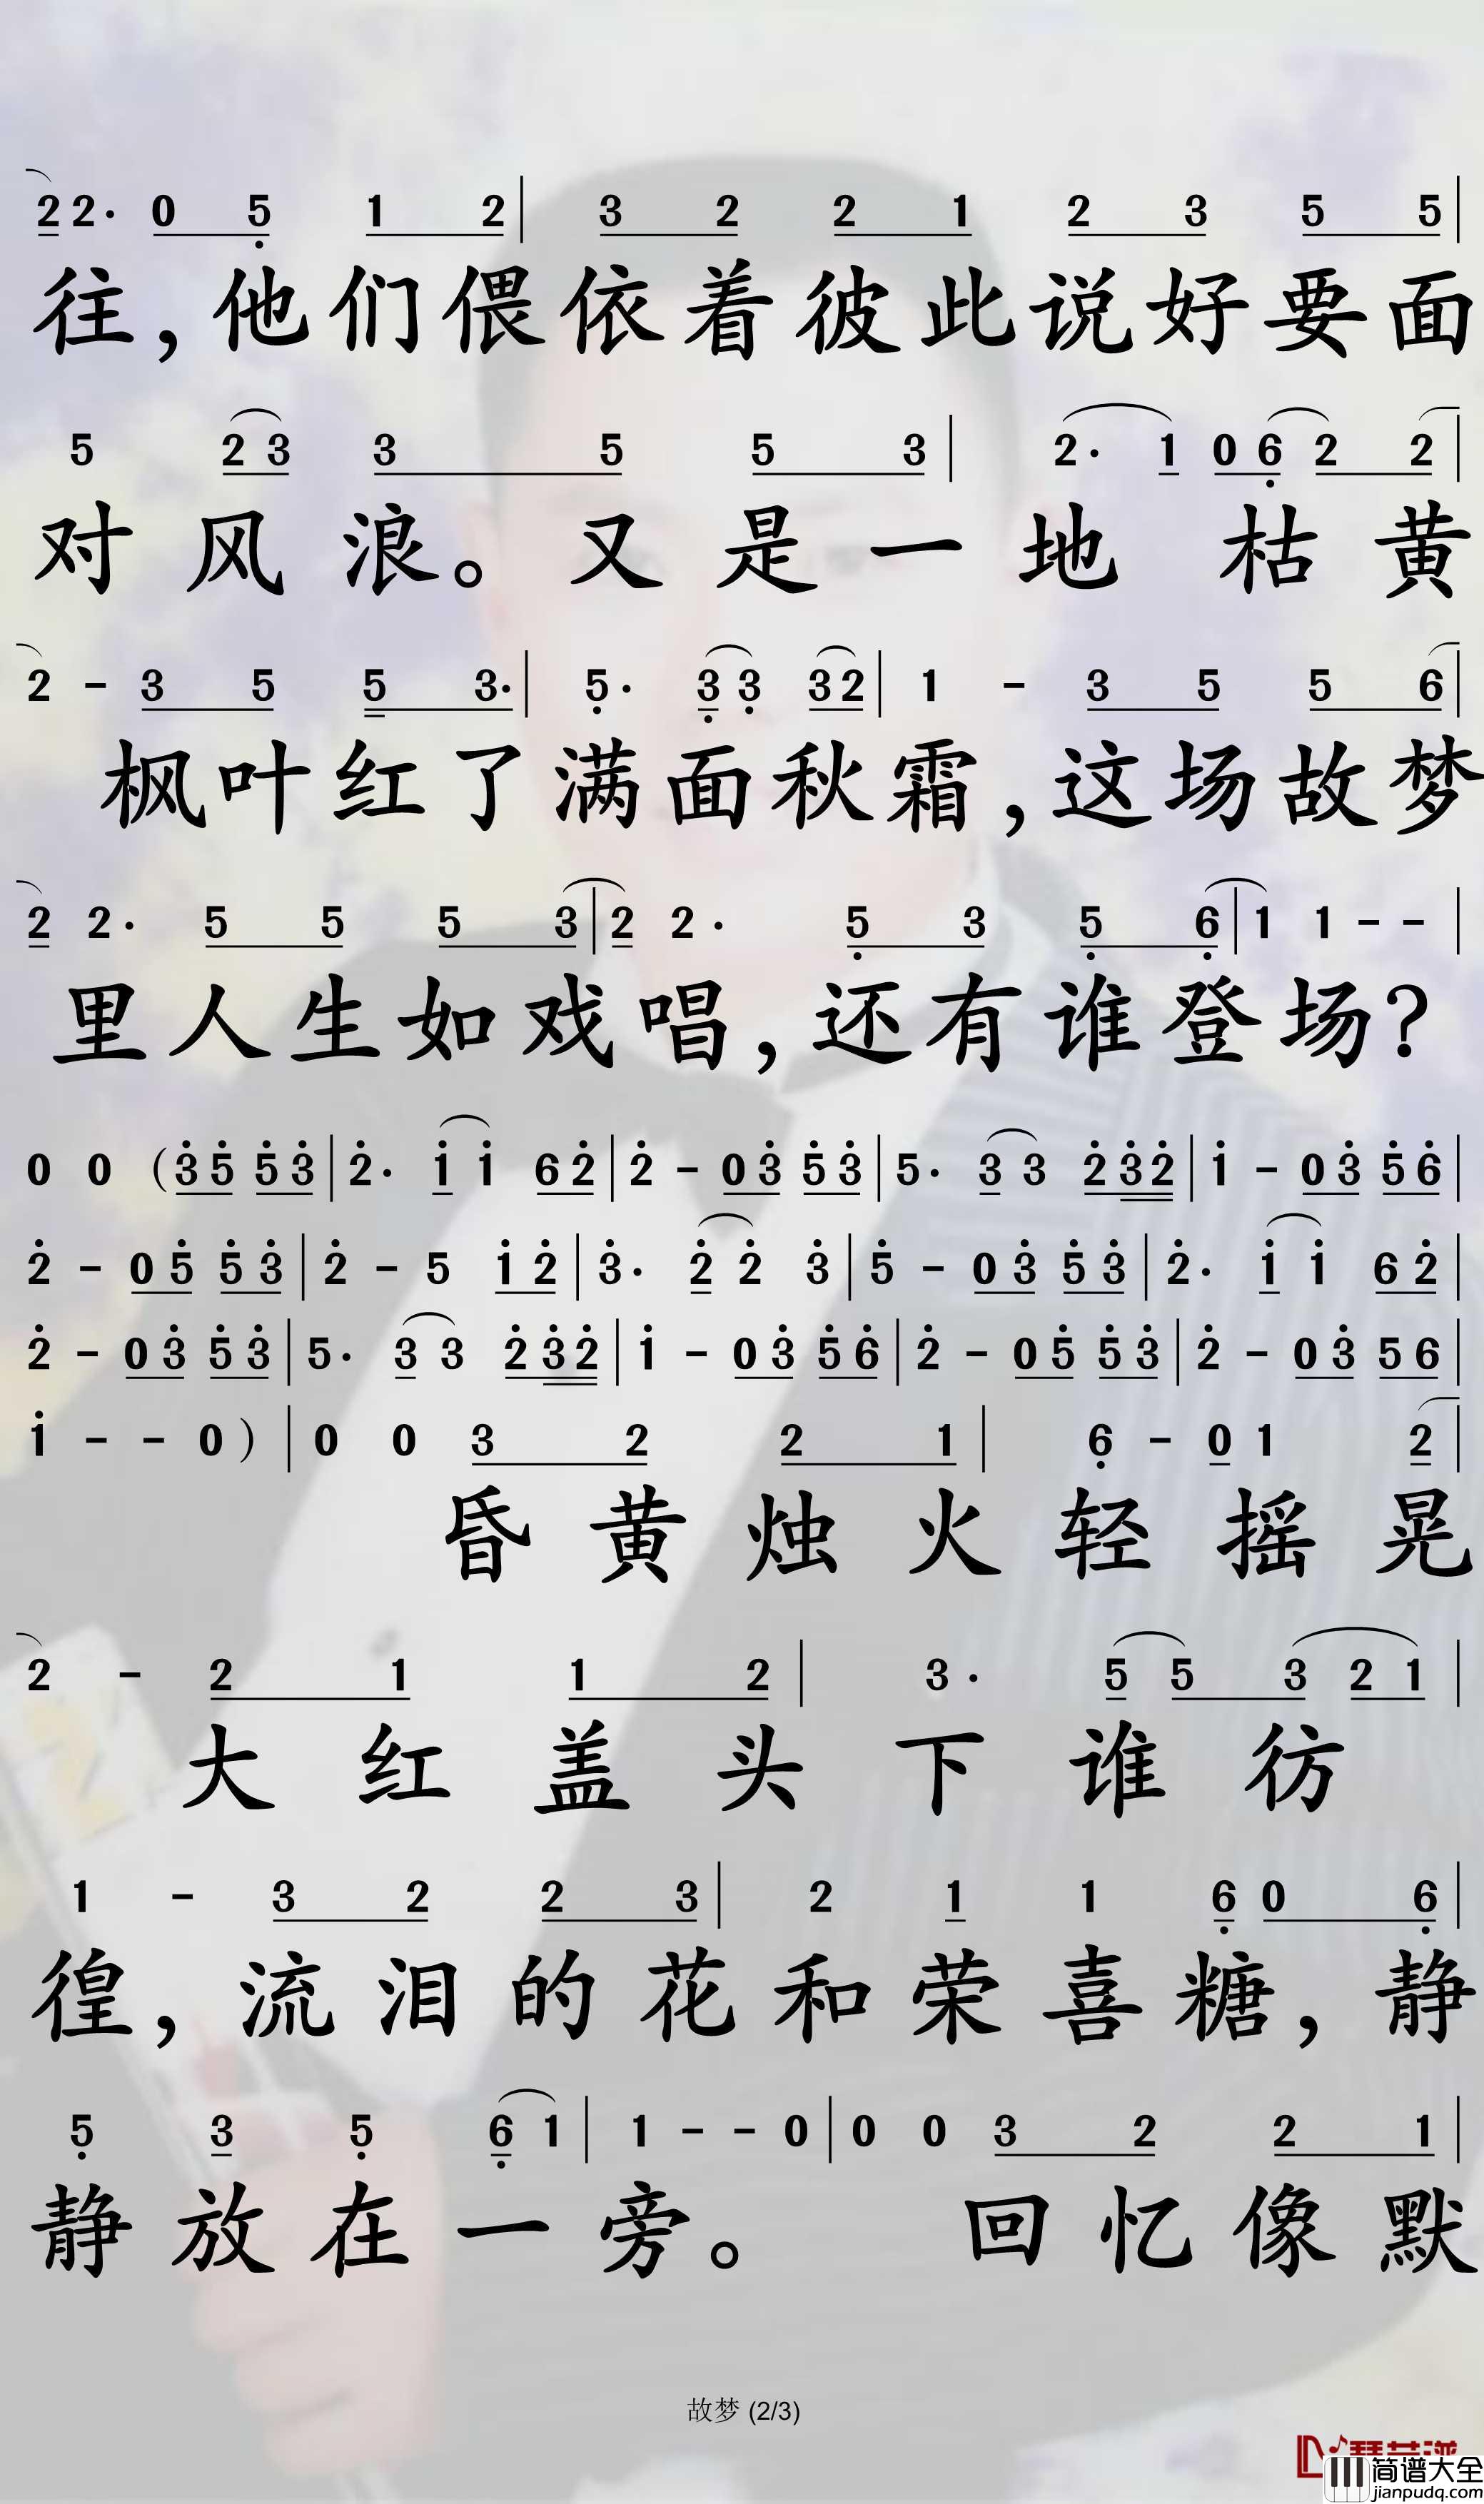 2 2· 0 5̣ 1 2 | 3 2 2 1 2 3 5 5 |
往，他们偎依着彼此说好要面
5 2 3 3 5 5 3 | 2· 1 0 6̣ 2 2 |
对风浪。又是一地枯黄
2 - 3 5 5 3· | 5̣· 3̣ 3̣ 3 2 | 1 - 3 5 5 6 |
枫叶红了满面秋霜，这场故梦
2 2· 5 5 5 3 | 2 2· 5̣ 3 5̣ 6̣ | 1 1 - - |
里人生如戏唱，还有谁登场？
0 0 （3̇ 5̇ 5̇ 3̇ | 2̇· 1̇ 1̇ 6 2̇ | 2̇ - 0 3̇ 5̇ 3̇ | 5· 3̇ 3 2̇ 3̇ 2̇ | 1̇ - 0 3̇ 5̇ 6̇ |
2̇ - 0 5̇ 5̇ 3̇ | 2̇ - 5 1̇ 2̇ | 3̇· 2̇ 2̇ 3̇ | 5̇ - 0 3̇ 5̇ 3̇ | 2̇· 1̇ 1̇ 6 2̇ |
2̇ - 0 3̇ 5̇ 3̇ | 5· 3 3 2̇ 3̇ 2̇ | 1̇ - 0 3̇ 5̇ 6̇ | 2̇ - 0 5̇ 5̇ 3̇ | 2̇ - 0 3̇ 5 6 |
1̇ - - 0） | 0 0 3 2 2 1 | 6̣ - 0 1 2 |
昏黄烛火轻摇晃
2 - 2 1 1 2 | 3· 5 5 3 2 1 |
大红盖头下谁彷
1 - 3 2 2 3 | 2 1 1 6̣ 0 6̣ |
徨，流泪的花和荣喜糖，静
5̣ 3 5̣ 6̣ 1 | 1 - - 0 | 0 0 3 2 2 1 |
静放在一旁。 回忆像默
故梦 (2/3)
简谱大全
jianpudq.com